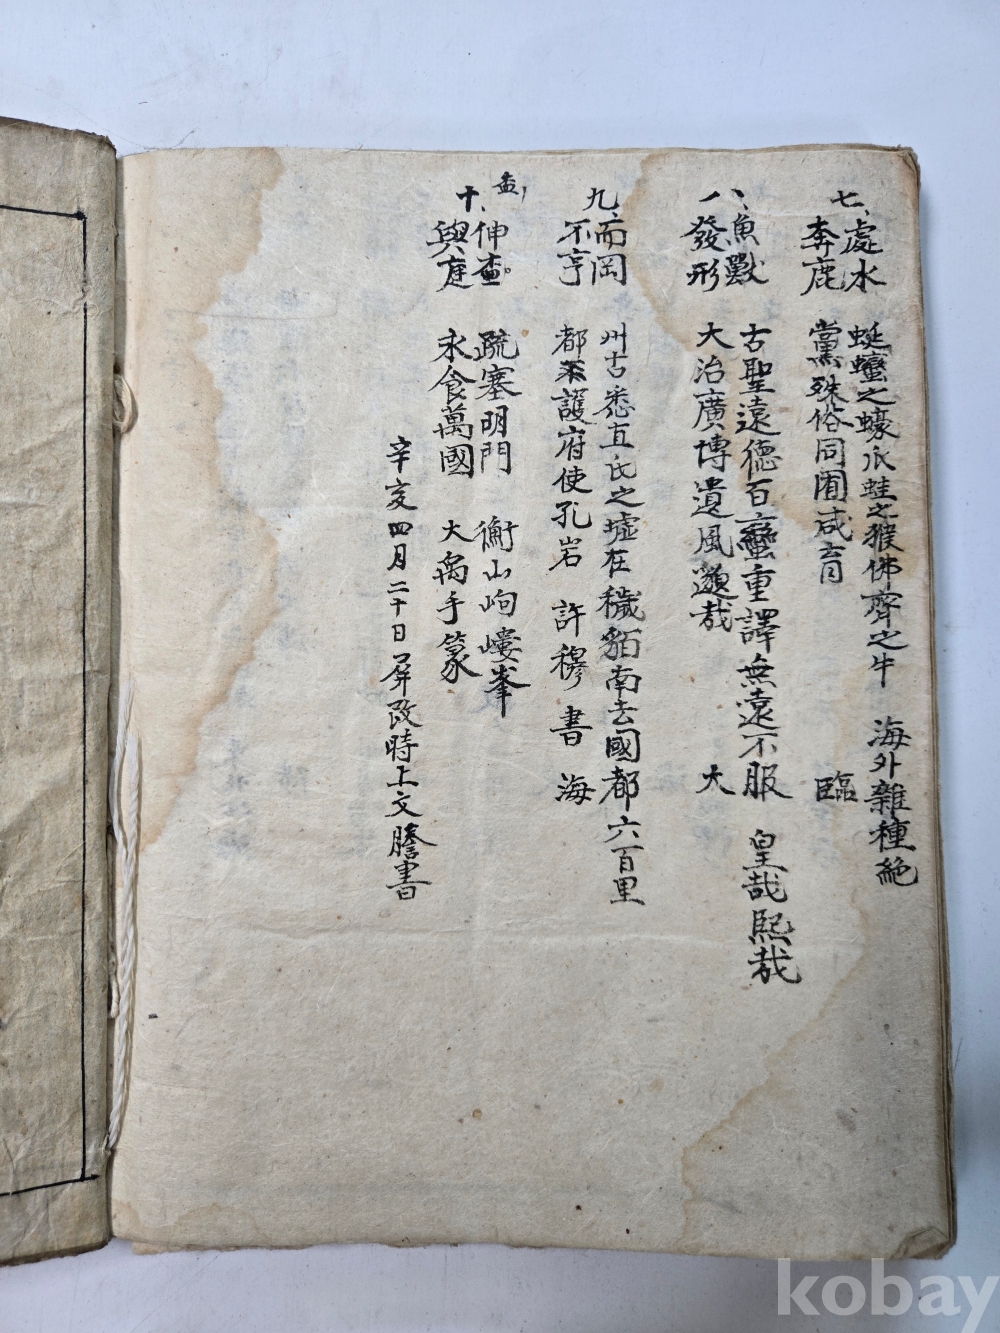 七、處水 奔鹿
蜒蠻之蠔 爪蛙之猴 佛齊之牛 海外雜種絶
黨殊俗同囿咸育 臨
八、魚獸 發形
古聖遠德百蠻重譯無遠不服 皇哉熙哉
大治廣博遺風邈哉 大
九、而岡 不亨
州古悉直氏之墟在穢貊南去國都六百里
都護府使孔岩 許穆 書 海
盍,
十、伸 輿庭
疏塞明門 衡山岣嶁峯
永食萬國 大禹手篆
辛亥四月二十日屛改時上文謄書
kobay